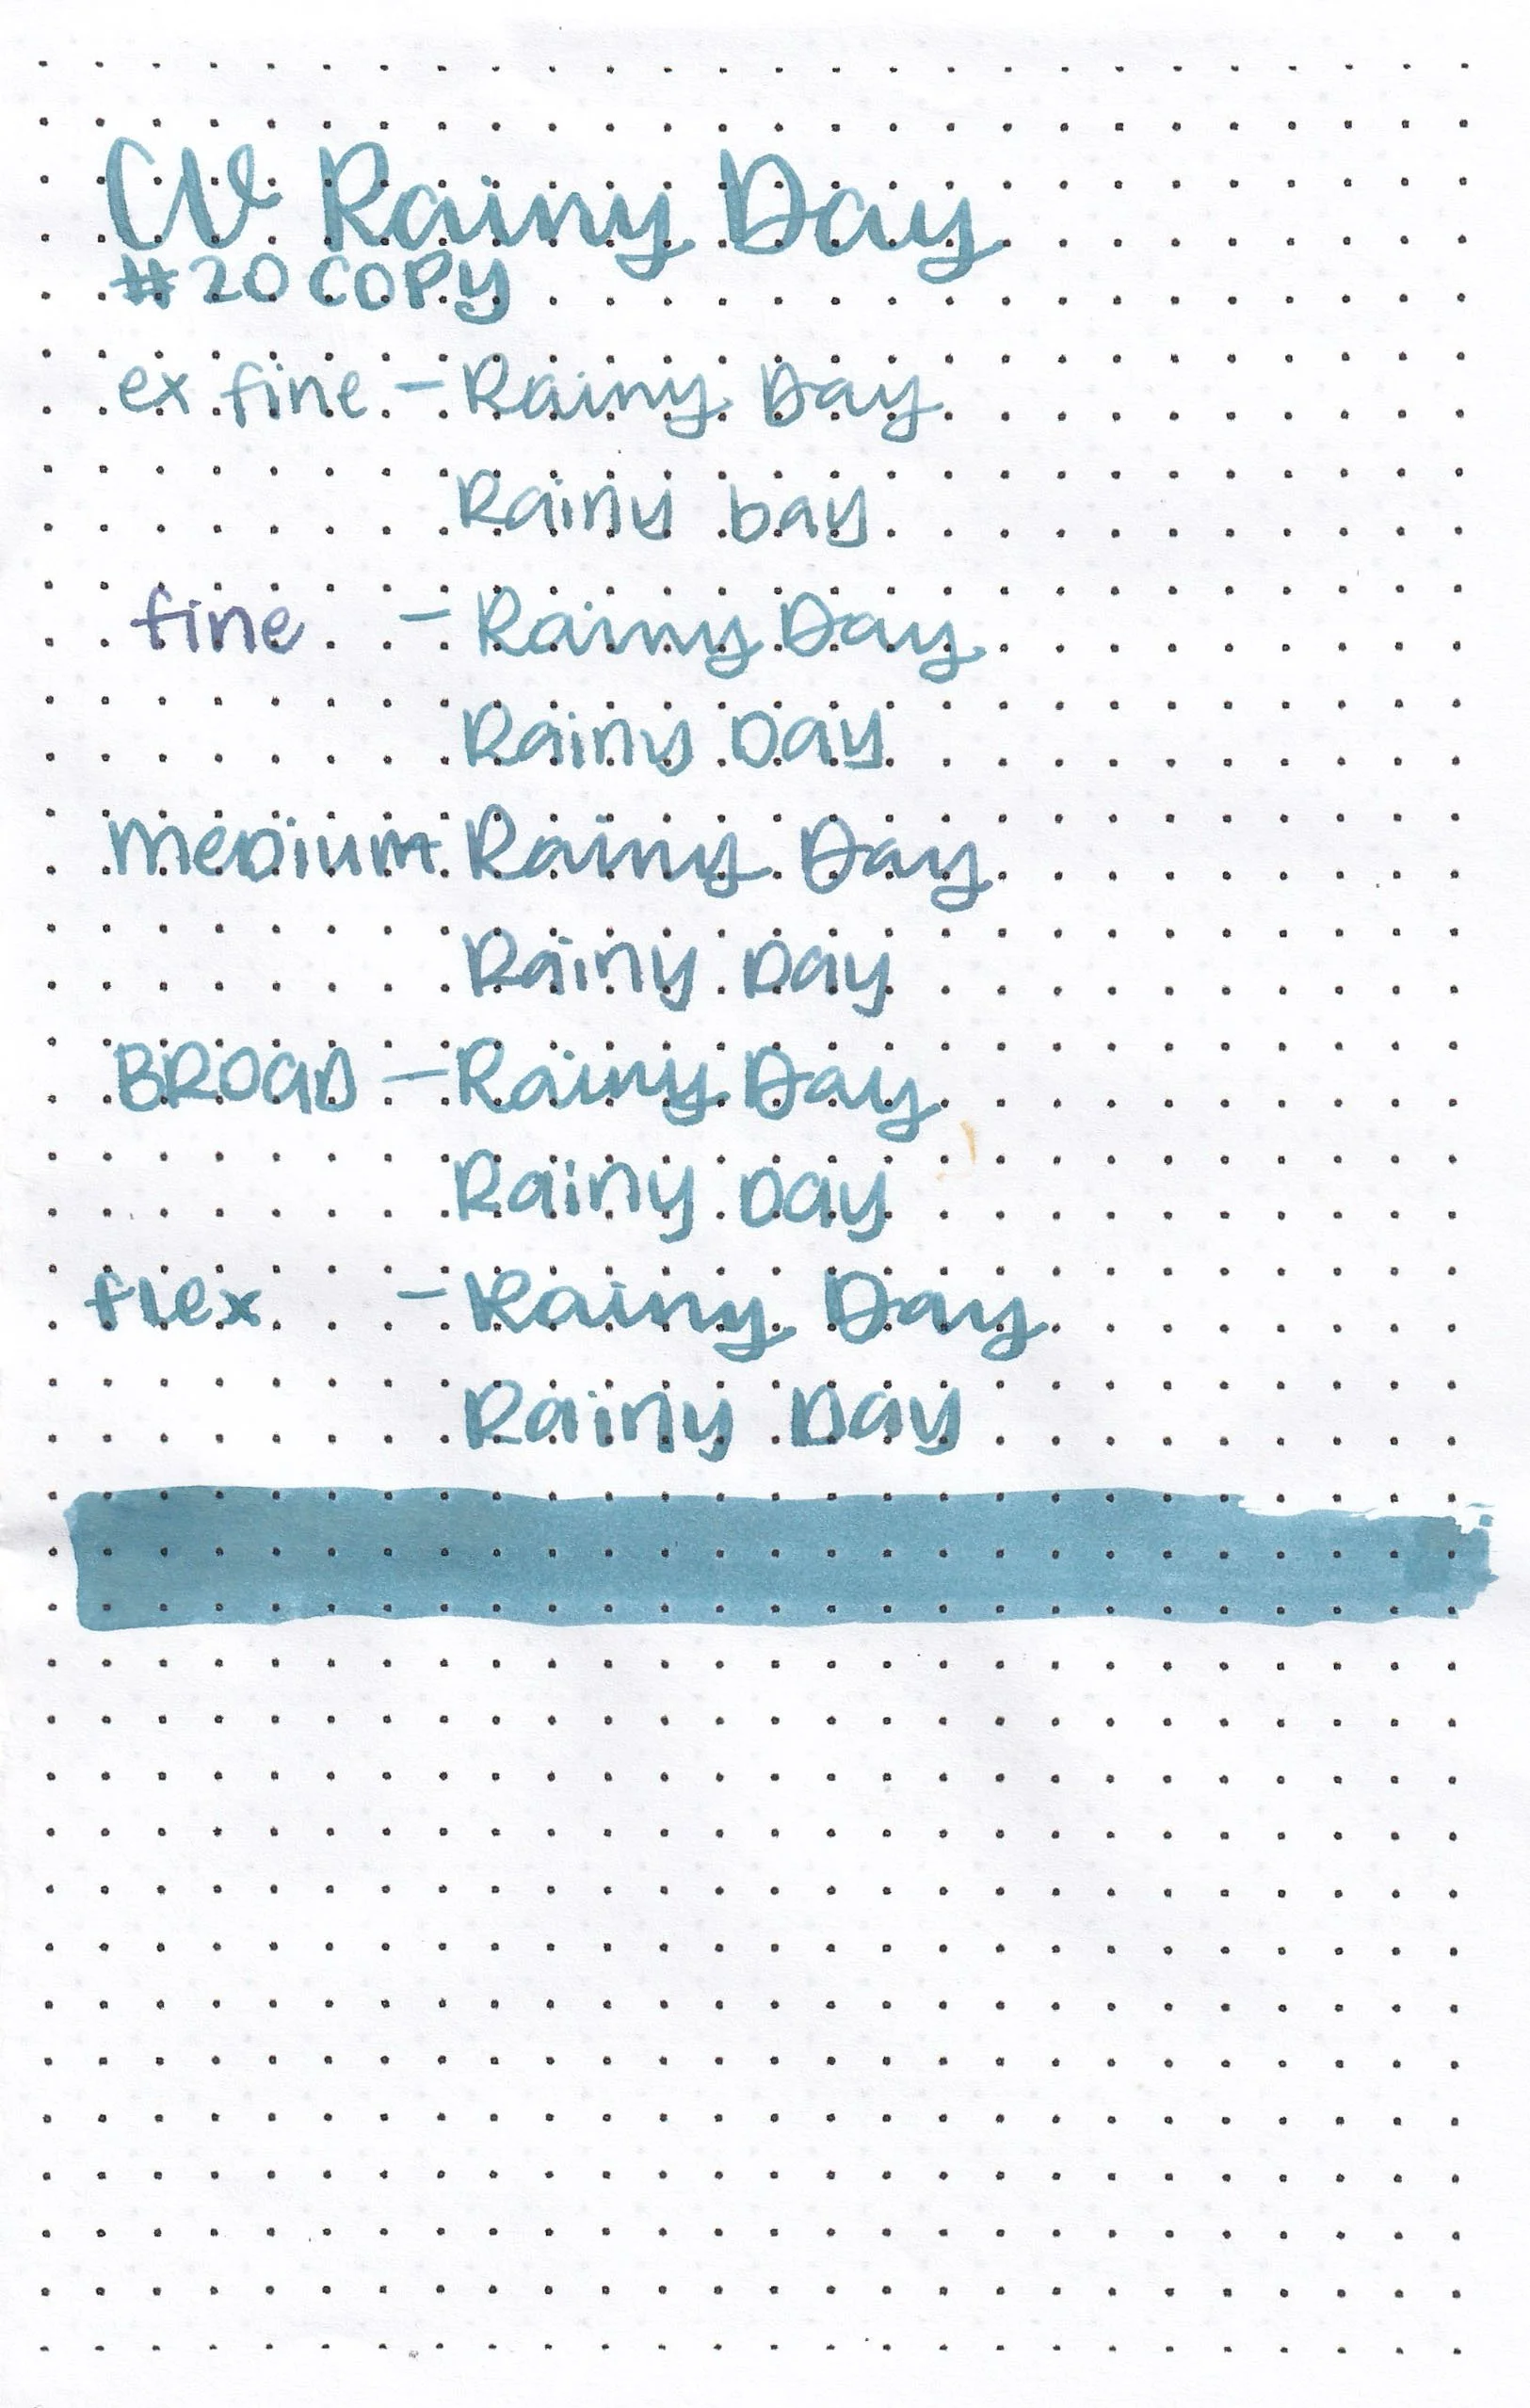 CV Rainy Day
#20 COPY
ex fine - Rainy Day
Rainy bay
fine - Rainy Day
Rainy Day
medium Rainy Day
Rainy Day
BROAD - Rainy Day
Rainy Day
flex - Rainy Day
Rainy Day